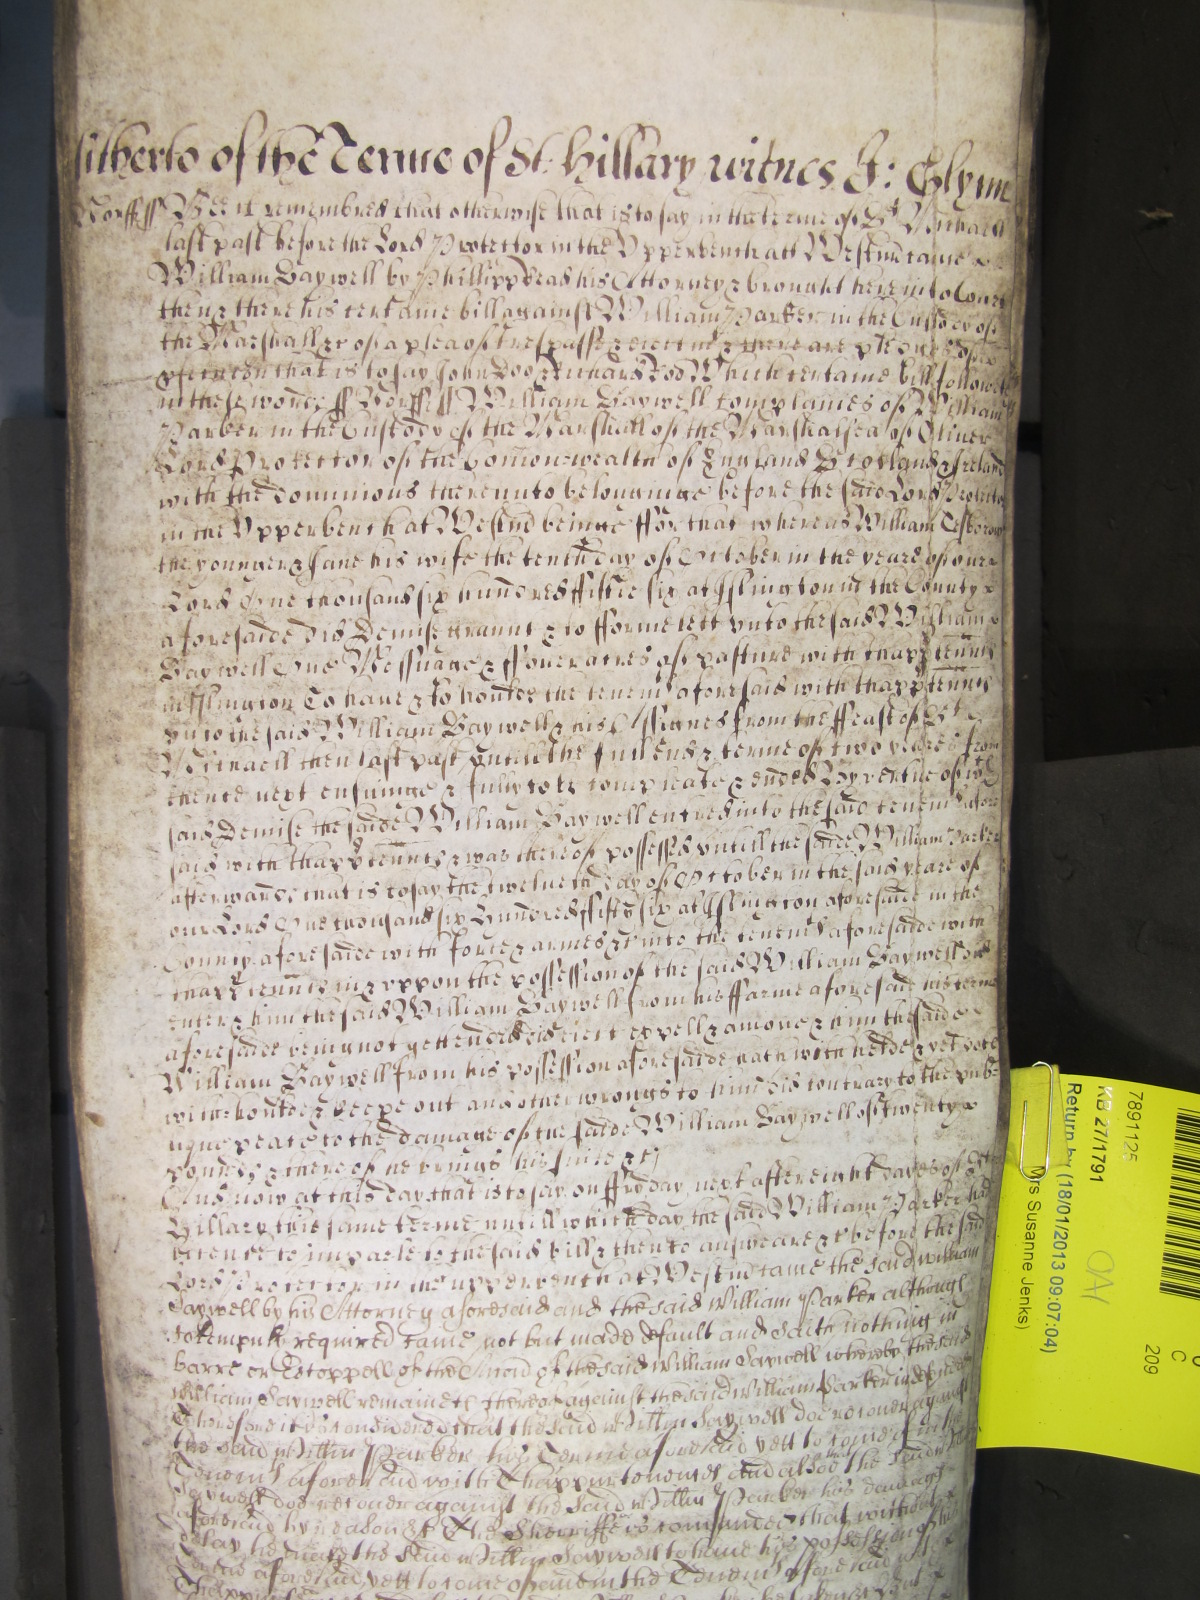 hitherto of the Terme of St. Hillary witnes J: Glynn
Norff ss Bee it remembred that otherwise that is to say in the terme of St Michaell
last past before the Lord Protector in the Upperbench att Westmr came
William Saywell by Phillipp Dead his Attorney & brought here into Court
then & there his certaine bill against William Parker in the Custody of
the Marshall &c of a plea of trespasse & eiectmt & there are pledges of
psecucon that is to say John Doo & Richard Roo Which certaine bill followeth
in these wordes ss Norff ss William Saywell complaines of William
Parker in the Custody of the Marshall of the Marshalsea of Oliver
Lord Protector of the Comonwealth of England Scotland & Ireland
with the dominions thereunto belonginge before the said Lord Protector
in the Upperbench at Westmr beinge ffor that whereas William
the younger & Jane his wife the tenth day of October in the yeare of our
Lord One thousand six hundred ffiftie six at Islington in the County
aforesaide did Demise graunt & to fferme lett unto the said William
Saywell One Messuage & ffower acres of pasture with thapp tennts
in Islington To have & to hould the tenemts aforesaid with thapp tennts
unto the said William Saywell & his Assignes from the ffeast of St
Michaell then last past untill the full end & terme of two yeares from
thence next ensuinge & fully to be compleate & ended By vertue of wch
said Demise the saide William Saywell entred into the said tenemts afore
said with thapp tennts & was thereof possessed untill the saide William Parker
afterwards that is to say the twelueth day of October in the said yeare of
our Lord One thousand six hundred ffifty six at Islington aforesaide in the
County aforesaide with force & armes &c into the tenemts aforesaide with
thapp tennts in & uppon the possession of the said William Saywell did
enter & him the said William Saywell from his ffarme aforesaid his terme
aforesaide being not yett ended did eiect expell & amove & him the saide
William Saywell from his possession aforesaide hath with helde & yet doth
with hould & keepe out and other wrongs to him did contrary to the pub
lique peace to the damage of the saide William Saywell of twenty
pounds & thereof he brings his suite &c
And now at this day that is to say on ffryday next after eight dayes of St
Hillary this same terme untill which day the said William Parker had
licence to imparle to the said bill & then to answeare &c before the said
Lord Protector in the upperbench at Westmr came the said William
Saywell by his Attorney aforesaid and the said William Parker although
solempnly required came not but made default and saith nothing in
barre or Estoppell of the of the said William Saywell whereby the said
William Saywell remaineth thereof against the said William Parker undefended
Therefore it is considered that the said Willm Saywell doe recover against
the said Willm Parker his Terme aforesaid yett to come of in the
Tenemts aforesaid with Thappurtenances and alsoe the said
Saywell doe recover against the said Willm Parker his damages
aforesaid by reason &c The Sherriffe is comanded that without
delay he the said Willm Saywell to have his possession of his
aforesaid yett to come of and in the Tenemts aforesaid with
7891125
KB 27/1791
Return by (18/01/2013 09:07:04)
Mrs Susanne Jenks)
OA1
C
209